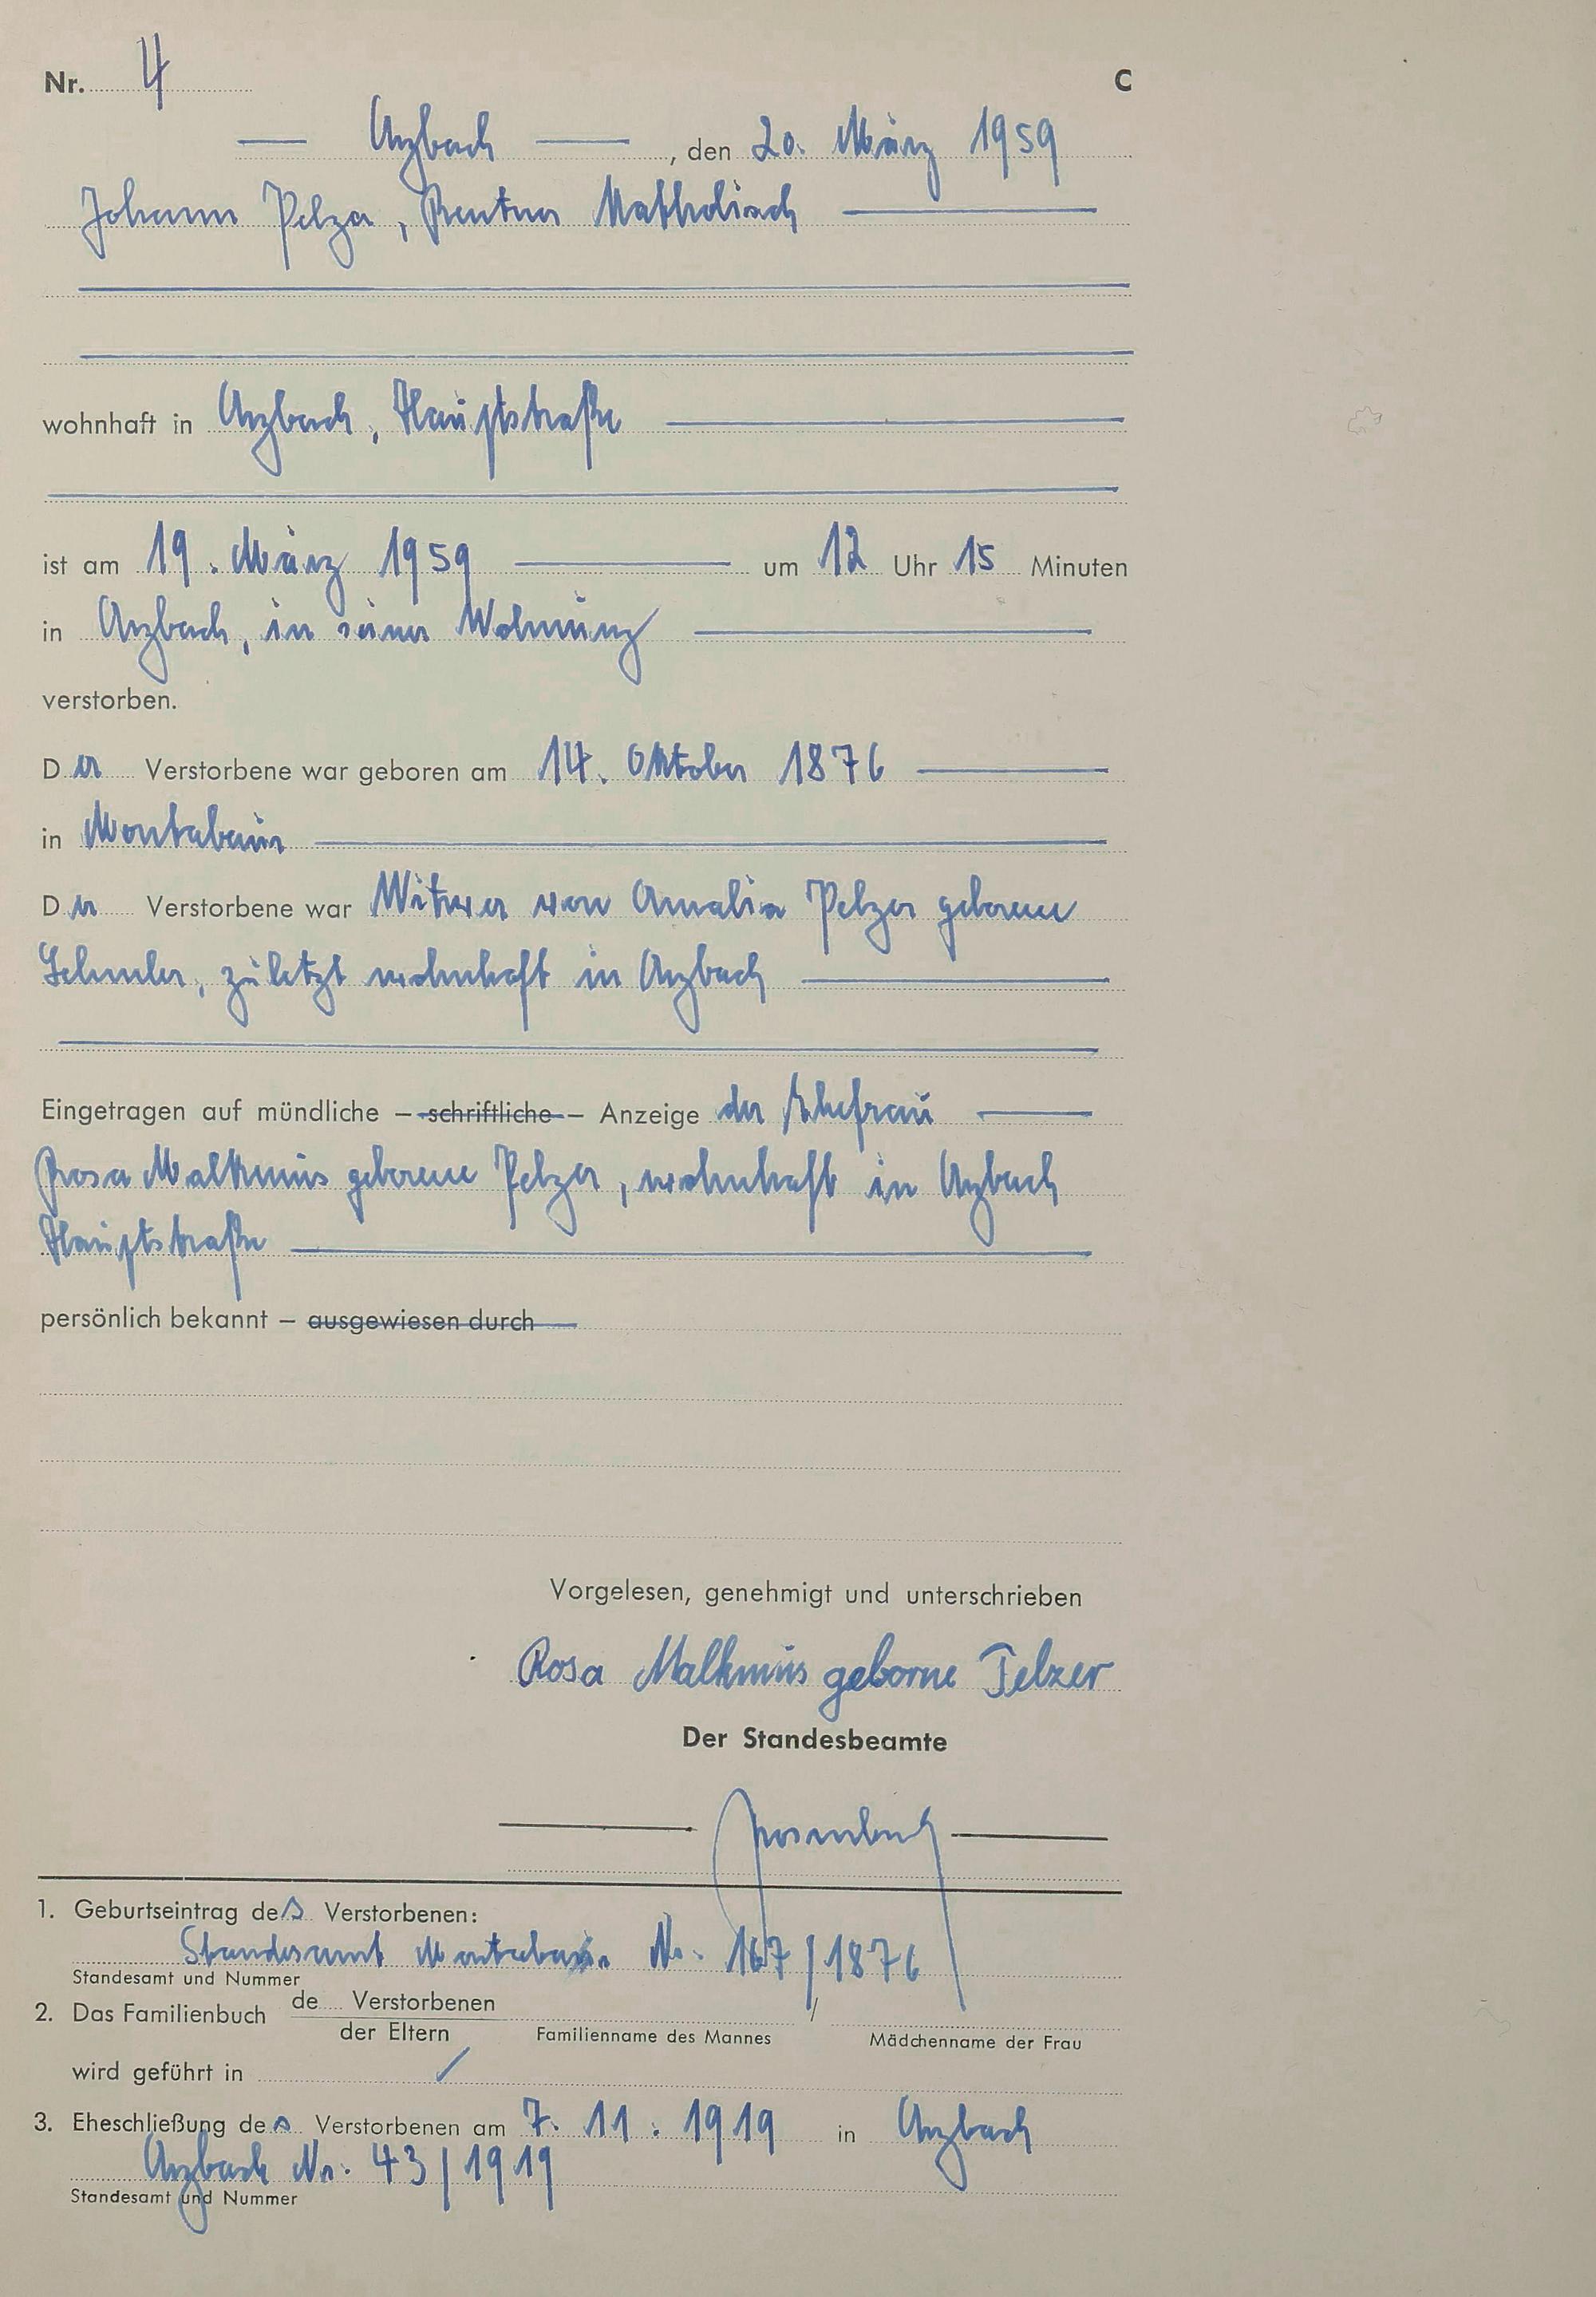 Nr. 4 C
Arzbach, den 20. März 1959
Johann Pelzer, Rentner Katholisch
wohnhaft in Arzbach, Hauptstraße
ist am 19. März 1959 um 12 Uhr 15 Minuten
in Arzbach, in seiner Wohnung
verstorben.
Der Verstorbene war geboren am 14. Oktober 1876
in Montabaur
Der Verstorbene war Witwer von Amalia Pelzer geborene
zuletzt wohnhaft in Arzbach
Eingetragen auf mündliche – schriftliche – Anzeige der Ehefrau
Rosa Malkmus geborene Pelzer, wohnhaft in Arzbach
Hauptstraße
persönlich bekannt – ausgewiesen durch
Vorgelesen, genehmigt und unterschrieben
Rosa Malkmus geborne Pelzer
Der Standesbeamte
1. Geburtseintrag des Verstorbenen:
Standesamt Montabaur Nr. 167/1876
Standesamt und Nummer
2. Das Familienbuch de Verstorbenen
der Eltern Familienname des Mannes / Mädchenname der Frau
wird geführt in
3. Eheschließung des Verstorbenen am 7. 11. 1919 in Arzbach
Arzbach Nr. 43/1919
Standesamt und Nummer